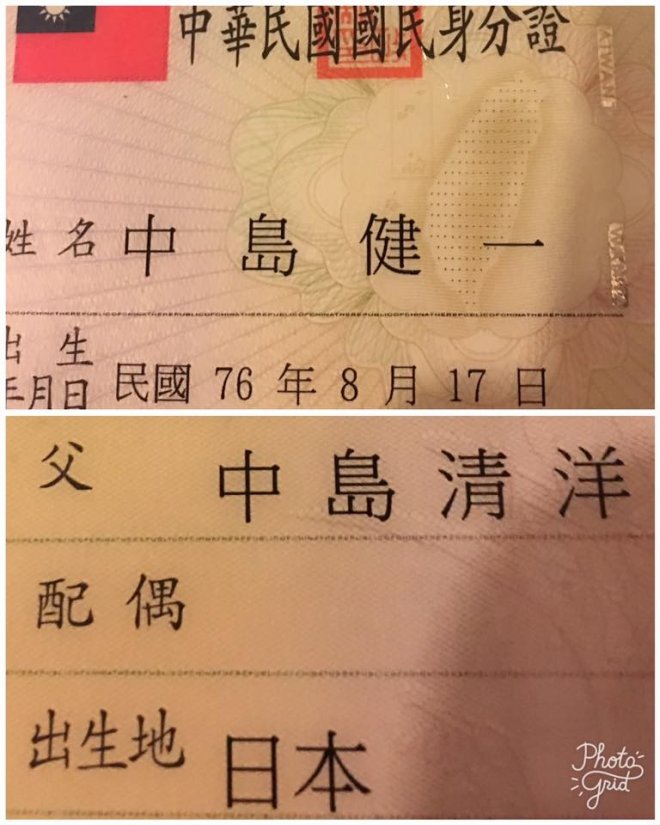 中華民國國民身分證
TAIWAN
姓名 中島健一
出生
年月日 民國 76 年 8 月 17 日
父 中島清洋
配偶
出生地 日本
Photo
Grid